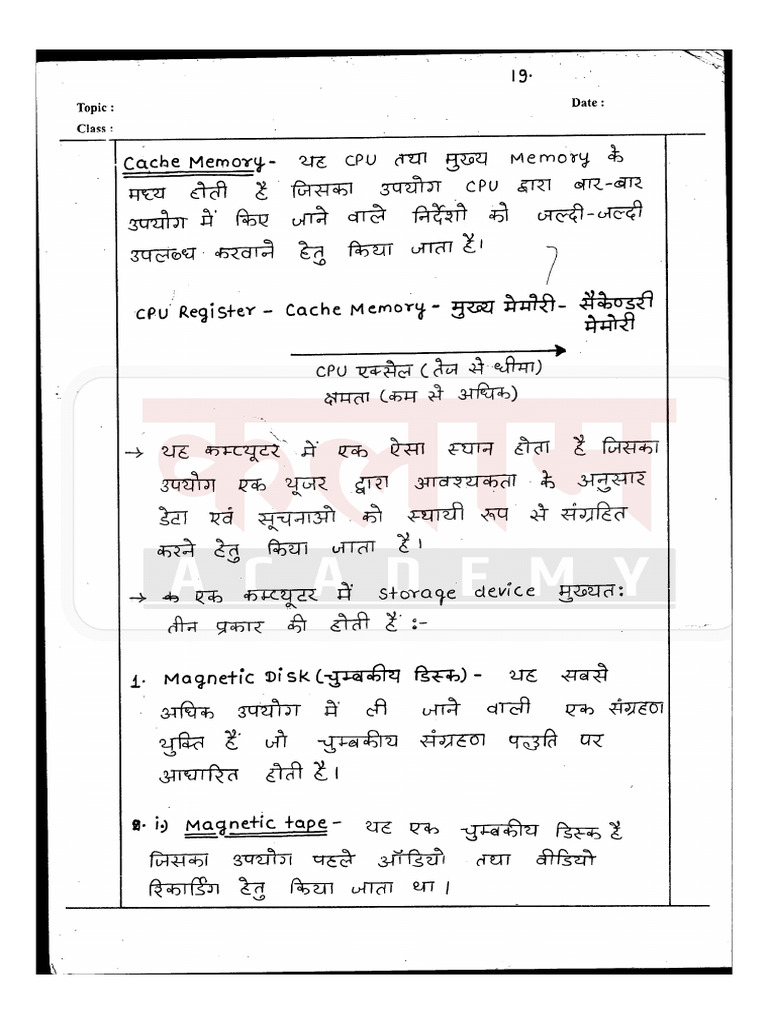 19.
Topic :
Date :
Class :
Cache Memory - यह CPU तथा मुख्य Memory के
मध्य होती है जिसका उपयोग CPU द्वारा बार-बार
उपयोग में किए जाने वाले निर्देशो को जल्दी-जल्दी
उपलब्ध करवाने हेतु किया जाता है।
CPU Register - Cache Memory - मुख्य मेमोरी - सैकेण्डरी
मेमोरी
CPU एक्सेल (तेज से धीमा)
क्षमता (कम से अधिक)
कलाम
→ यह कम्प्यूटर में एक ऐसा स्थान होता है जिसका
उपयोग एक यूजर द्वारा आवश्यकता के अनुसार
डेटा एवं सूचनाओ को स्थायी रूप से संग्रहित
करने हेतु किया जाता है।
ACADEMY
→ एक कम्प्यूटर में storage device मुख्यतः
तीन प्रकार की होती हैं :-
1. Magnetic Disk (चुम्बकीय डिस्क) - यह सबसे
अधिक उपयोग में ली जाने वाली एक संग्रहण
युक्ति हैं जो चुम्बकीय संग्रहण पद्धति पर
आधारित होती है।
i.) Magnetic tape - यह एक चुम्बकीय डिस्क है
जिसका उपयोग पहले ऑडियो तथा वीडियो
रिकार्डिंग हेतु किया जाता था।